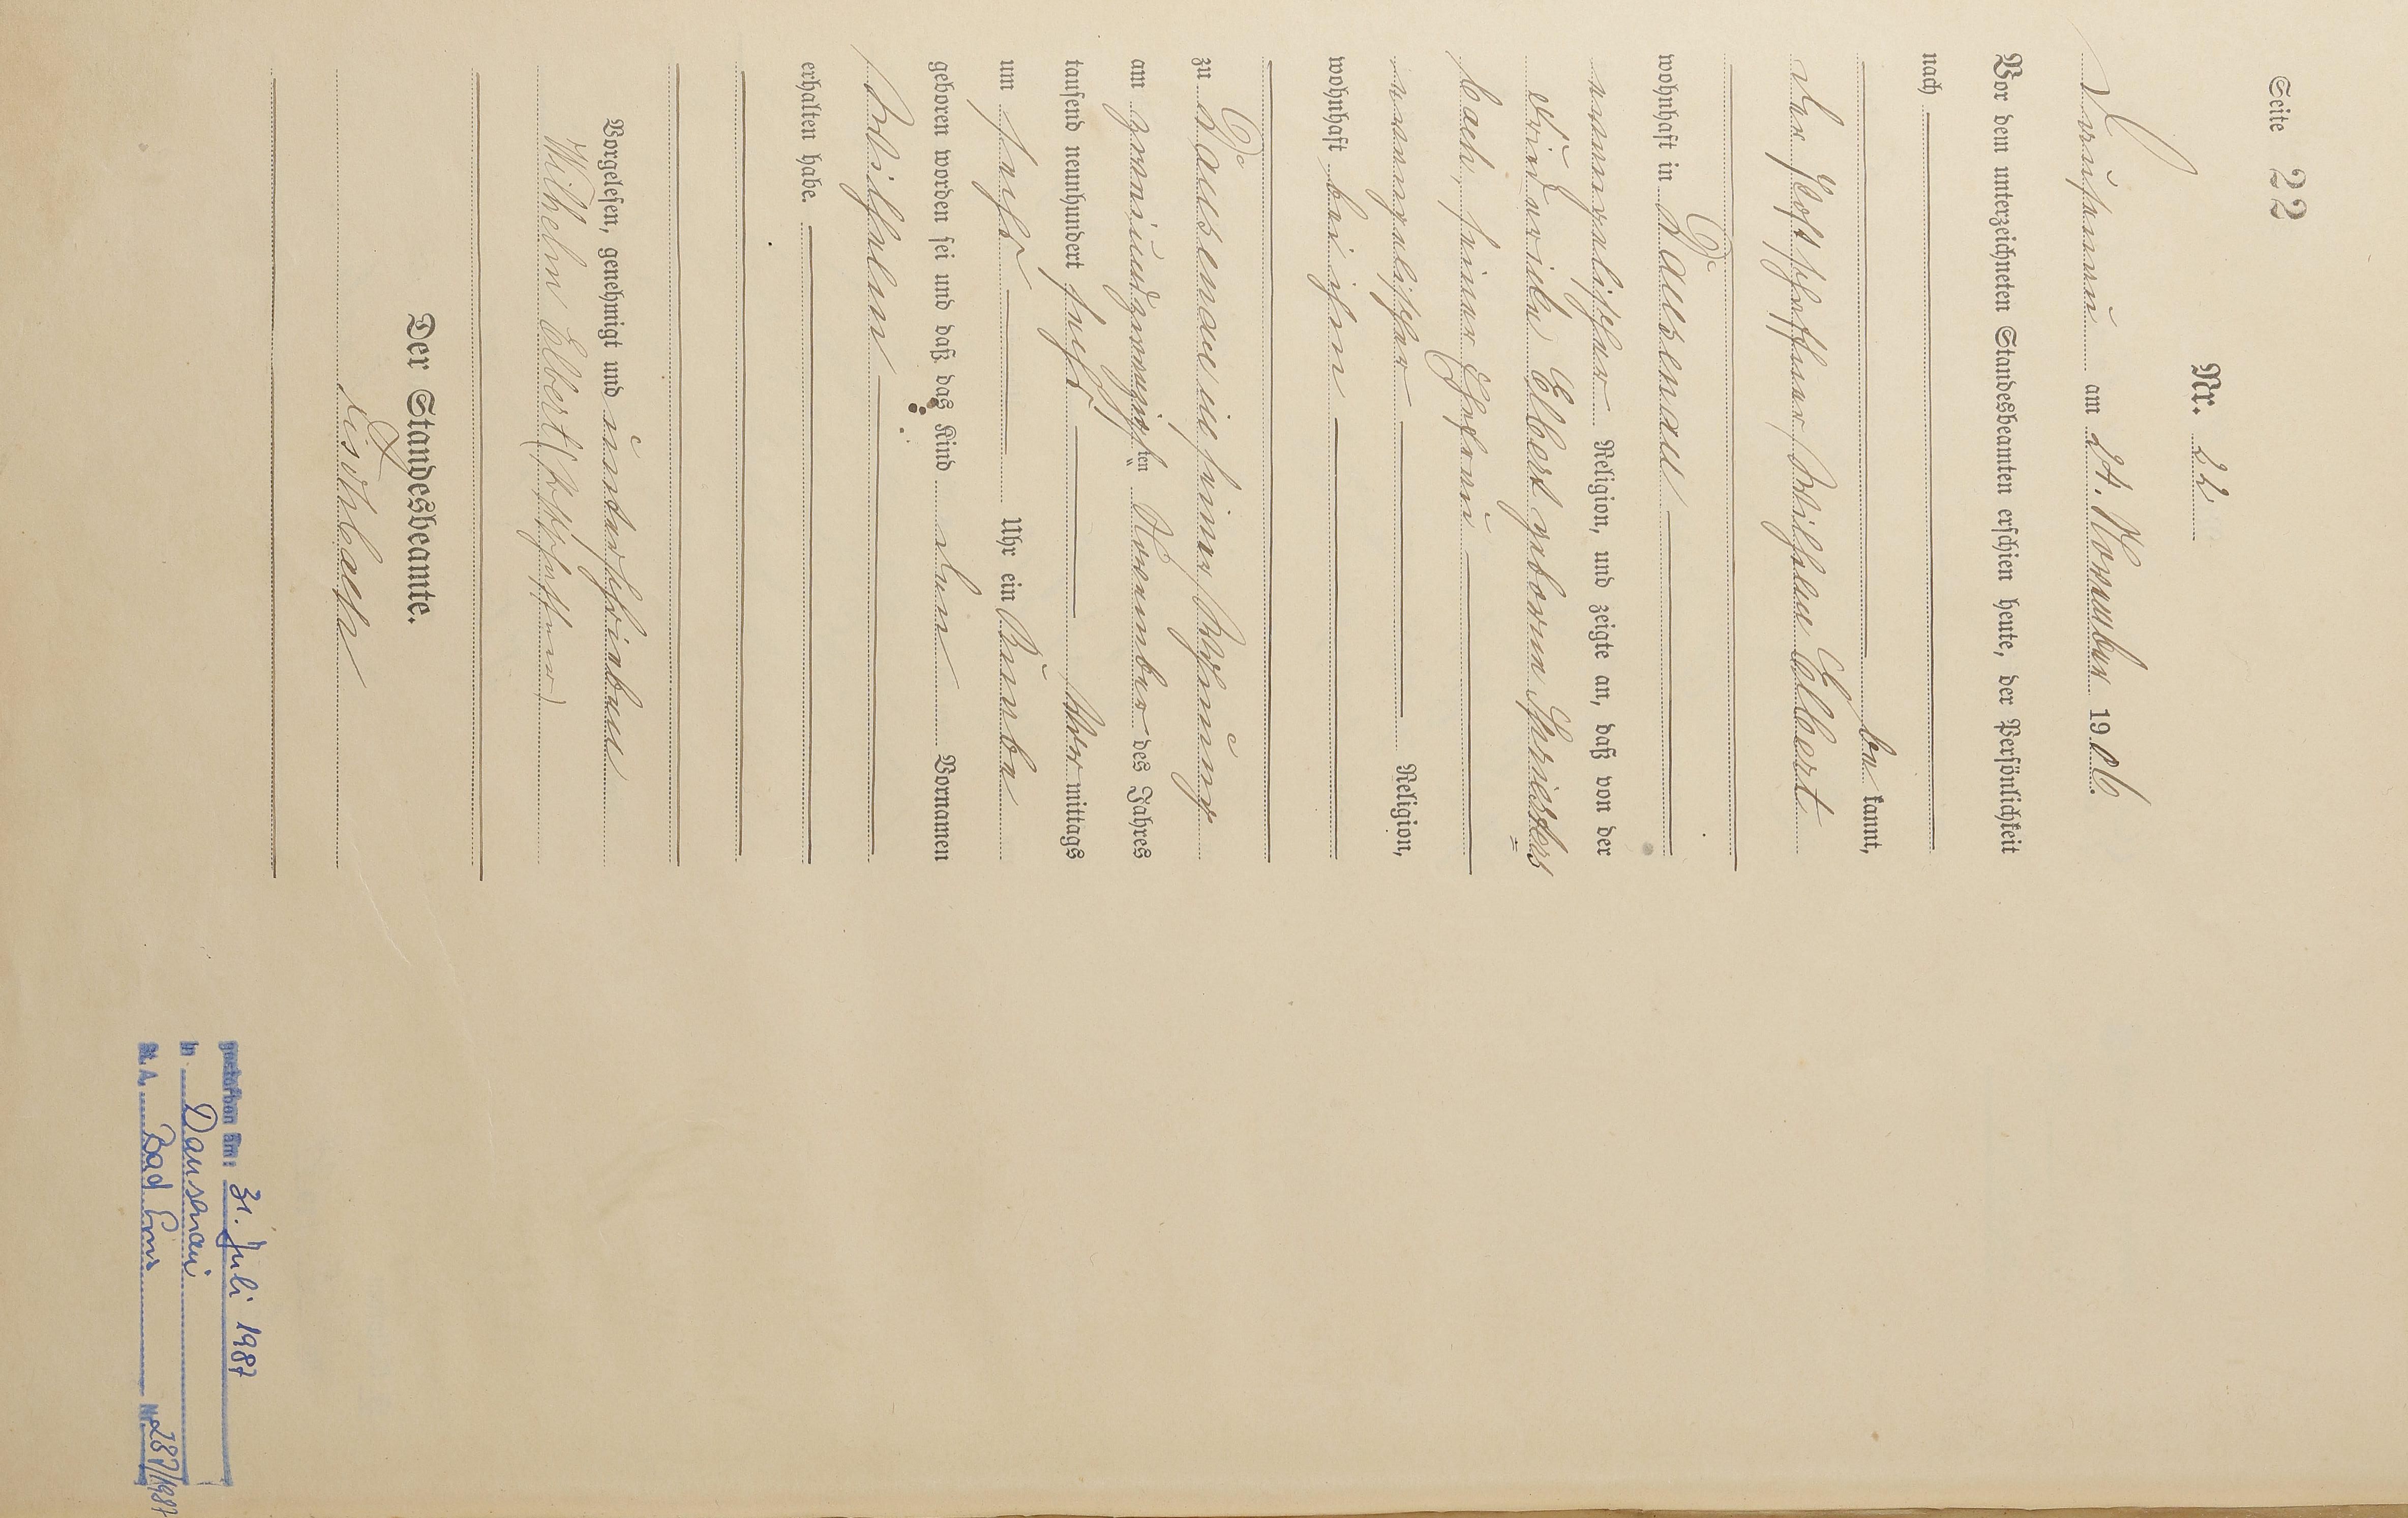 Seite 22
Nr. 22
Dausenau am 24. November 1906.
Vor dem unterzeichneten Standesbeamten erschien heute, der Persönlichkeit
nach
be kannt,
der Postschaffner, Wilhelm Elbert
wohnhaft in Dausenau
evangelischer Religion, und zeigte an, daß von der
Friederike Elbert geborene Spriesters=
bach, seiner Ehefrau
evangelischer Religion,
wohnhaft bei ihm
zu Dausenau in seiner Wohnung
am zweiundzwanzigsten November des Jahres
tausend neunhundert sechs Vor mittags
um sechs Uhr ein Knabe
geboren worden sei und daß das Kind den Vornamen
Wilhelm
erhalten habe.
Vorgelesen, genehmigt und unterschrieben
Wilhelm Elbert (Postschaffner)
Der Standesbeamte.
Linkbach
gestorben am: 31. Juli 1987
in Dausenau
St. A. Bad Ems Nr. 287/1987